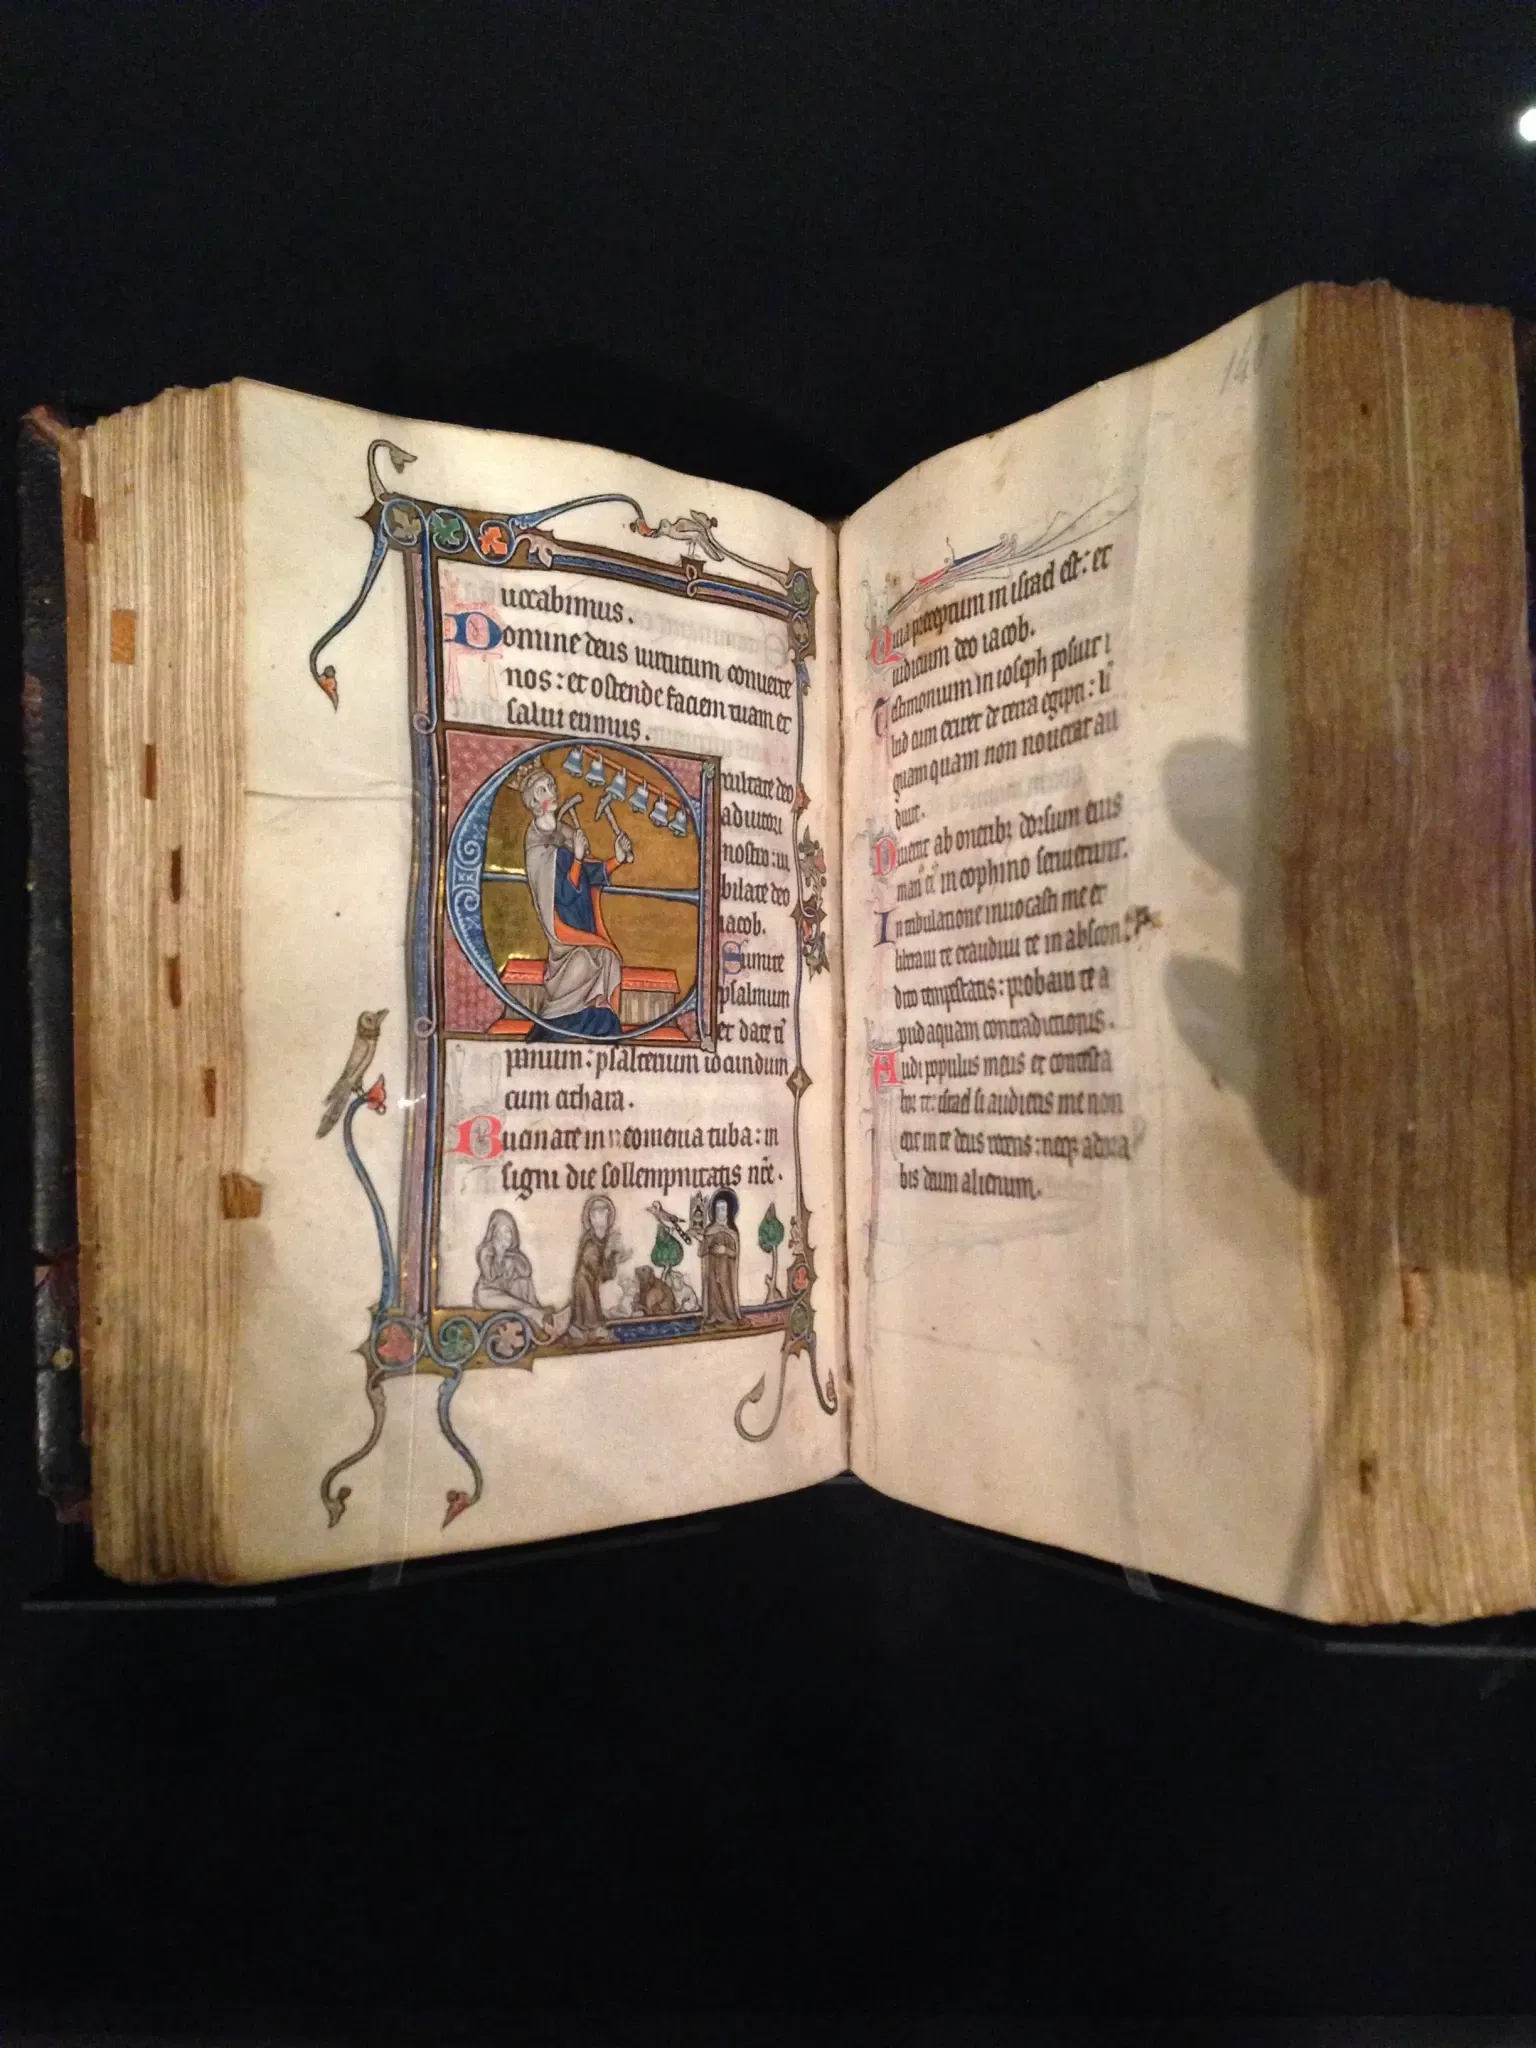 uocabimus.
Domine deus uirtutum conuerte
nos: et ostende faciem tuam et
salui erimus.
Exultate deo
adiutori
nostro: iu
bilate deo
iacob.
Sumite
psalmum
et date ti
panum: psalterium iocundum
cum cithara.
Bucinate in neomenia tuba: in
signi die sollempnitatis nr̄e.
Quia preceptum in israel est: et
iudicium deo iacob.
Testimonium in ioseph posuit i
lud cum exiret de terra egipti: li
guam quam non nouerat au
diuit.
Diuertit ab oneribꝫ dorsum eius
man⁹ ei⁹ in cophino seruierunt.
In tribulatione inuocasti me et
liberaui te exaudiui te in abscon
dito tempestatis: probaui te a
pud aquam contradictionis.
Audi populus meus et contesta
bor te: israel si audieris me non
erit in te deus recens: neqꝫ adora
bis deum alienum.